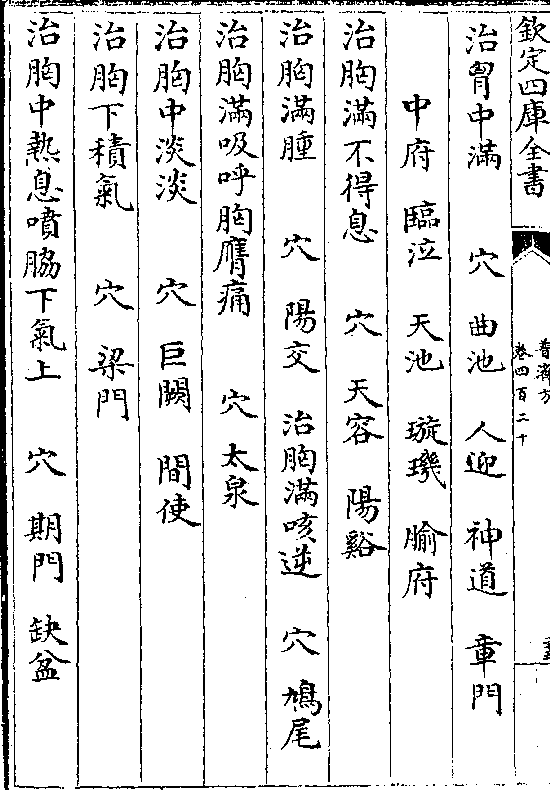 欽定四庫全書
普濟方
卷四百二十
治胷中滿 穴 曲池 人迎 神道 章門
中府 臨泣 天池 璇璣 腧府
治胸滿不得息 穴 天容 陽谿
治胸滿腫 穴 陽交 治胸滿咳逆 穴 鳩尾
治胸滿吸呼胸膺痛 穴 太泉
治胸中淡淡 穴 巨闕 間使
治胸下積氣 穴 梁門
治胸中熱息噴脇下氣上 穴 期門 缺盆